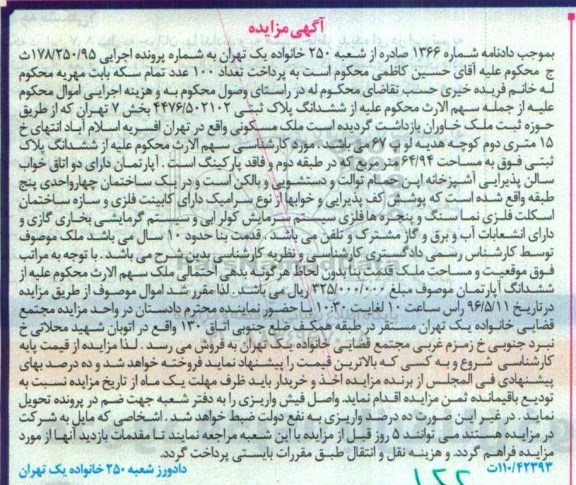 آگهی مزایده
بموجب دادنامه شماره ۱۳۶۶ صادره از شعبه ۲۵۰ خانواده یک تهران به شماره پرونده اجرایی ۱۷۸/۲۵۰/۹۵ث
ج محکوم علیه آقای حسین کاظمی محکوم است به پرداخت تعداد ۱۰۰ عدد تمام سکه بابت مهریه محکوم
له خانم فریده خیری حسب تقاضای محکوم له در راستای وصول محکوم به و هزینه اجرایی اموال محکوم
علیه از جمله سهم الارث محکوم علیه از ششدانگ پلاک ثبتی ۴۴۷۶/۵۰۲۱۰۲ بخش ۷ تهران که از طریق
حوزه ثبت ملک خاوران بازداشت گردیده است ملک مسکونی واقع در تهران افسریه اسلام آباد انتهای خ
۱۵ متری دوم کوچه هدیه لو پ ۶۷ می باشد. مورد کارشناسی سهم الارث محکوم علیه از ششدانگ پلاک
ثبتی فوق به مساحت ۶۴/۹۴ متر مربع که در طبقه دوم و فاقد پارکینگ است. آپارتمان دارای دو اتاق خواب
سالن پذیرایی آشپزخانه اپن حمام توالت و دستشویی و بالکن است و در یک ساختمان چهار واحدی پنج
طبقه واقع شده است که پوشش کف پذیرایی و خوابها از نوع سرامیک دارای کابینت فلزی و سازه ساختمان
اسکلت فلزی نما سنگ و پنجره ها فلزی سیستم سرمایش کولر آبی و سیستم گرمایشی بخاری گازی و
دارای انشعابات آب و برق و گاز مشترک و تلفن می باشد. قدمت بنا حدود ۱۰ سال می باشد ملک موصوف
توسط کارشناس رسمی دادگستری کارشناسی و نظریه کارشناسی بدین شرح می باشد. با توجه به مراتب
فوق موقعیت و مساحت ملک قدمت بنا بدون لحاظ هرگونه بدهی احتمالی ملک سهم الارث محکوم علیه از
ششدانگ آپارتمان موصوف مبلغ ۳۲۵/۰۰۰/۰۰۰ ریال می باشد. لذا مقرر شد اموال موصوف از طریق مزایده
در تاریخ ۹۶/۵/۱۱ راس ساعت ۱۰ لغایت ۱۰:۳۰ با حضور نماینده محترم دادستان در واحد مزایده مجتمع
قضایی خانواده یک تهران مستقر در طبقه همکف ضلع جنوبی اتاق ۱۳۰ واقع در اتوبان شهید محلاتی خ
نبرد جنوبی خ زمزم غربی مجتمع قضایی خانواده یک تهران به فروش می رسد. لذا مزایده از قیمت پایه
کارشناسی شروع و به کسی که بالاترین قیمت را پیشنهاد نماید فروخته خواهد شد و ده درصد بهای
پیشنهادی فی المجلس از برنده مزایده اخذ و خریدار باید ظرف مهلت یک ماه از تاریخ مزایده نسبت به
تودیع باقیمانده ثمن مزایده اقدام نماید. واصل فیش واریزی را به دفتر شعبه جهت ضم در پرونده تحویل
نماید. در غیر این صورت ده درصد واریزی به نفع دولت ضبط خواهد شد. اشخاصی که مایل به شرکت
در مزایده هستند می توانند ۵ روز قبل از مزایده با این شعبه مراجعه نمایند تا مقدمات بازدید آنها از مورد
مزایده فراهم گردد. و هزینه نقل و انتقال طبق مقررات بایستی پرداخت گردد.
۱۱۰/۴۲۳۹۳ت دادورز شعبه ۲۵۰ خانواده یک تهران